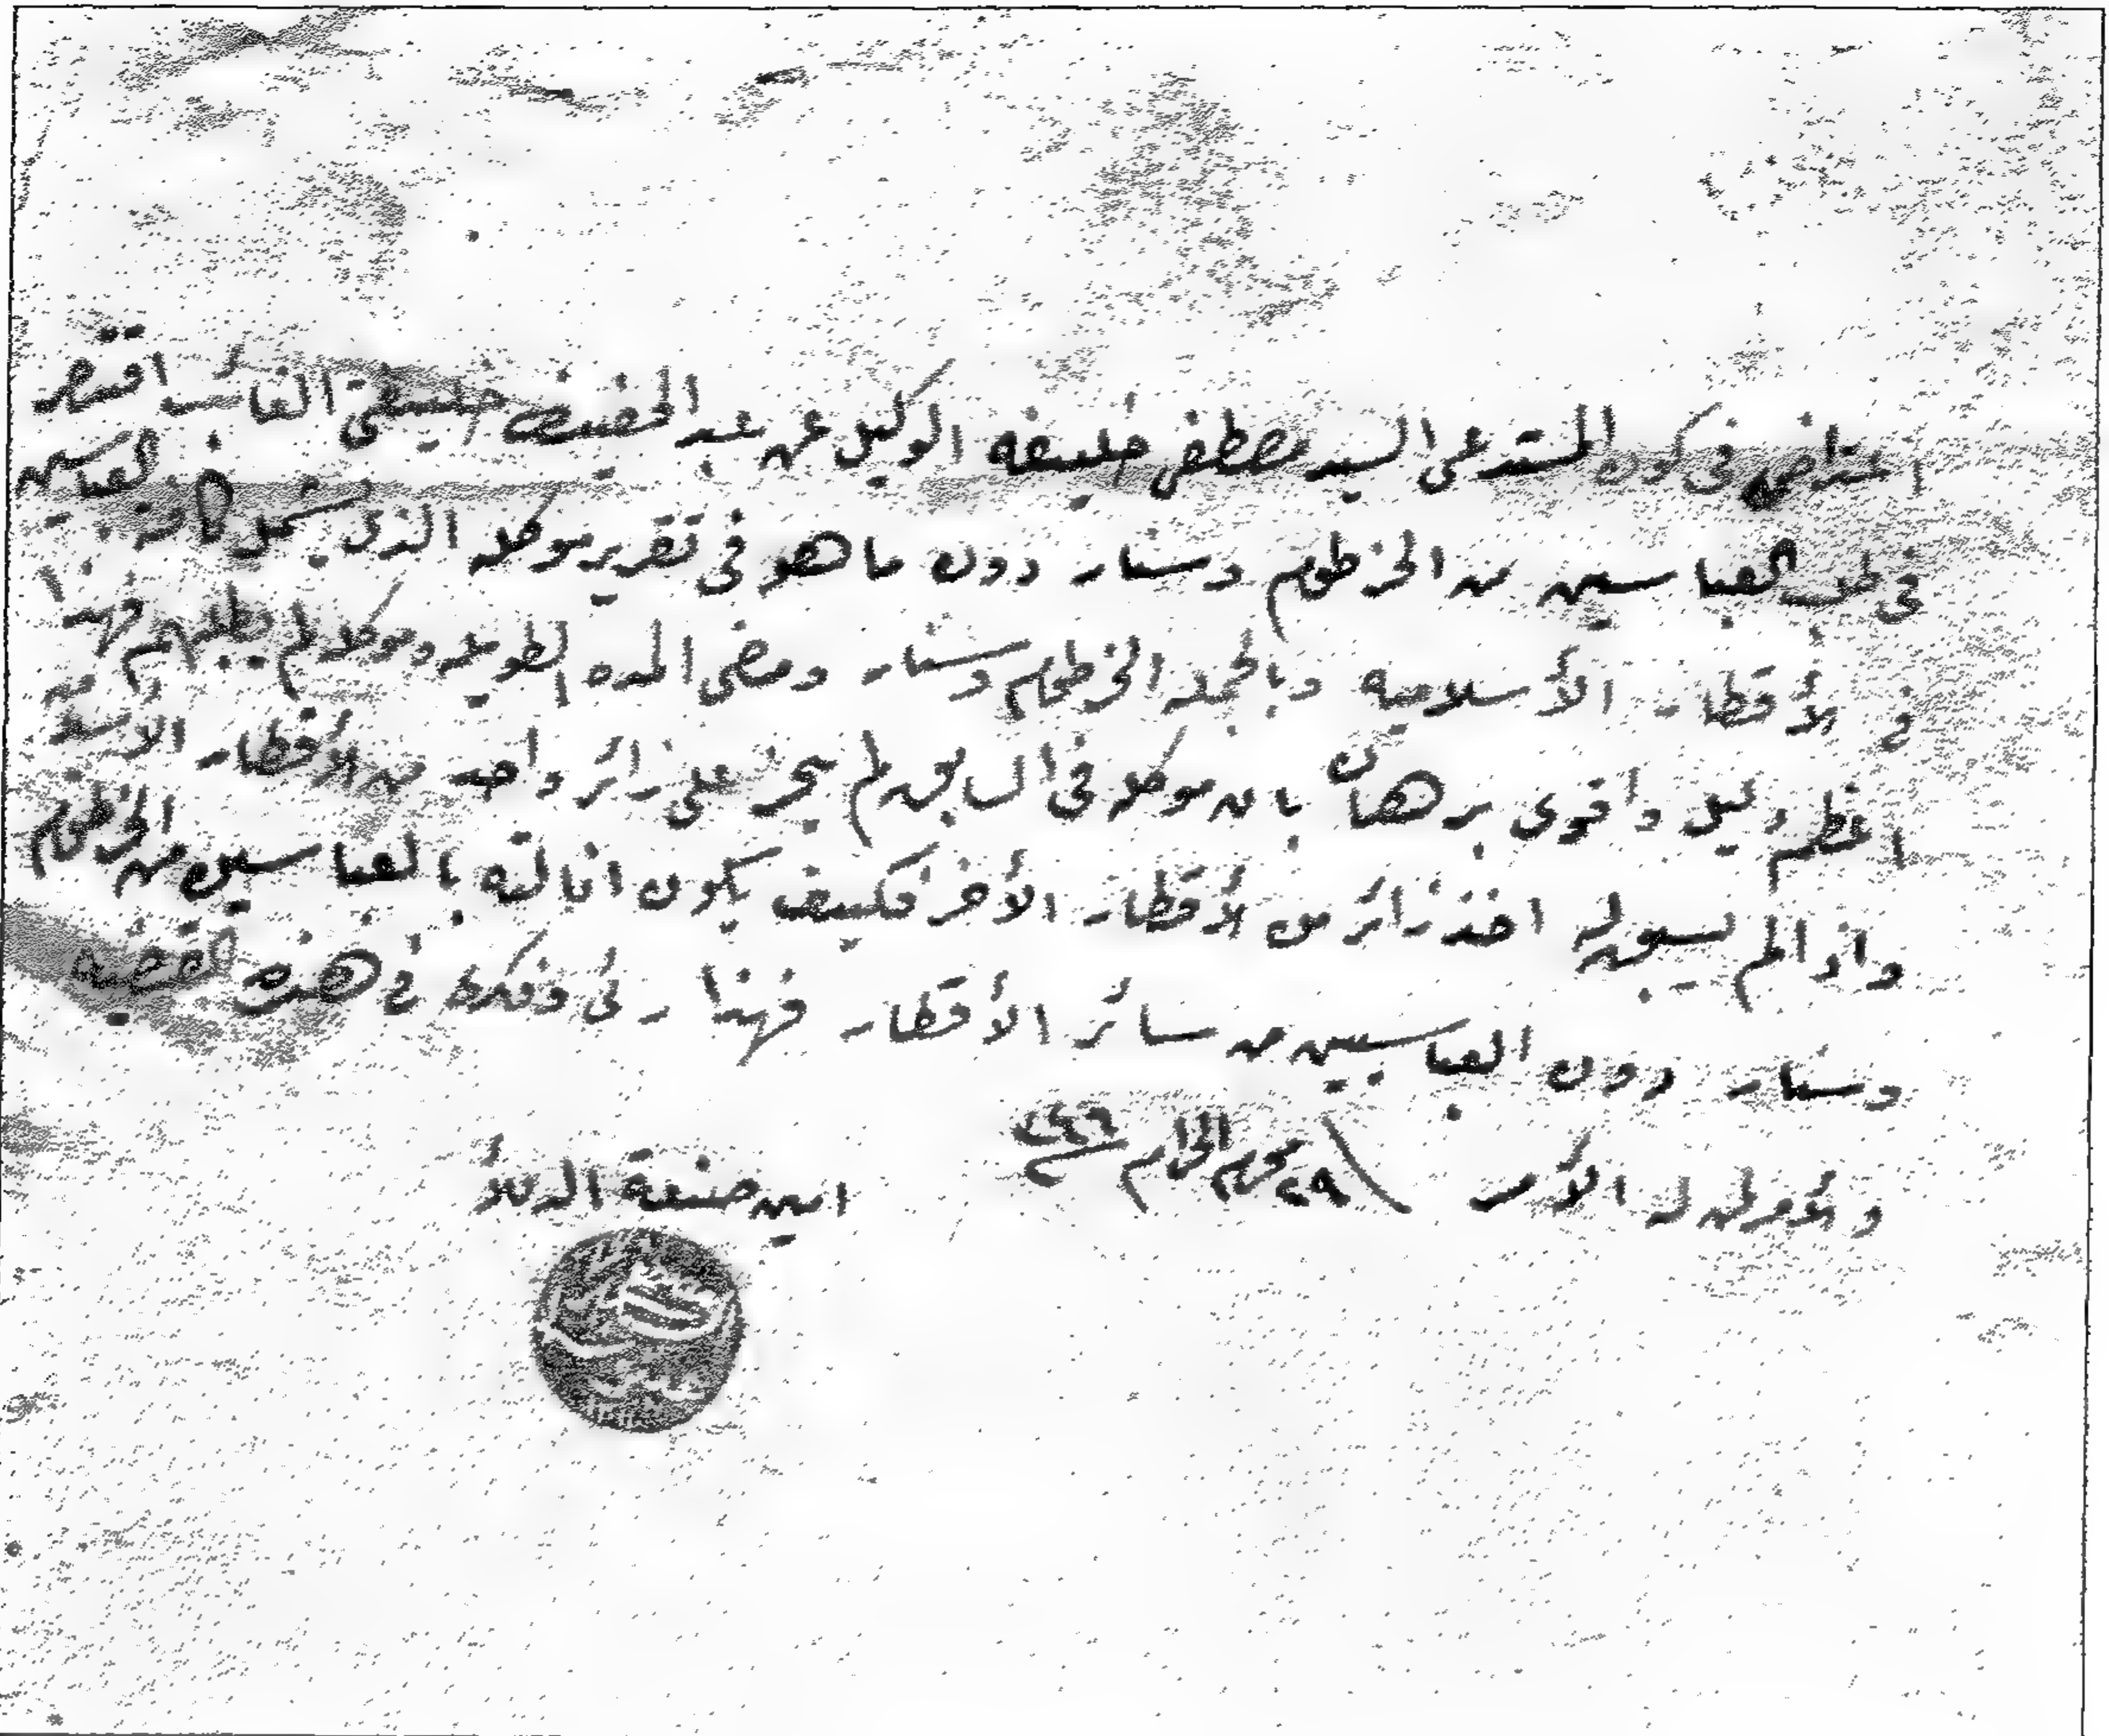 اعتراض في كون المستدعي السيد مصطفى خليفه الوكيل عن عبد الحفيظ خليفة الغائب اقتصر
في طلب العباسيين من الخرطوم وسنار دون ما هو في تقرير موكله الذي يشمل كافة العباسيين
في الأقطار الأسلاميه وبالجمله الخرطوم وسنار ومضى المده الطويله وموكله لم يطلبهم فهذا
اعظم دليل واقوى برهان بان موكله في السابق لم يحز على زائر واحد من الأقطار
واذا لم يسبق له اخذ زائر من الأقطار الأخر فكيف يكون بالعباسيين من الخرطوم
وسنار دون العباسيين من سائر الأقطار فهذا رئي وفكري في هذه القضيه
والأمر لمن له الأمر ٢٩ محرم الحرام
امين صنعة